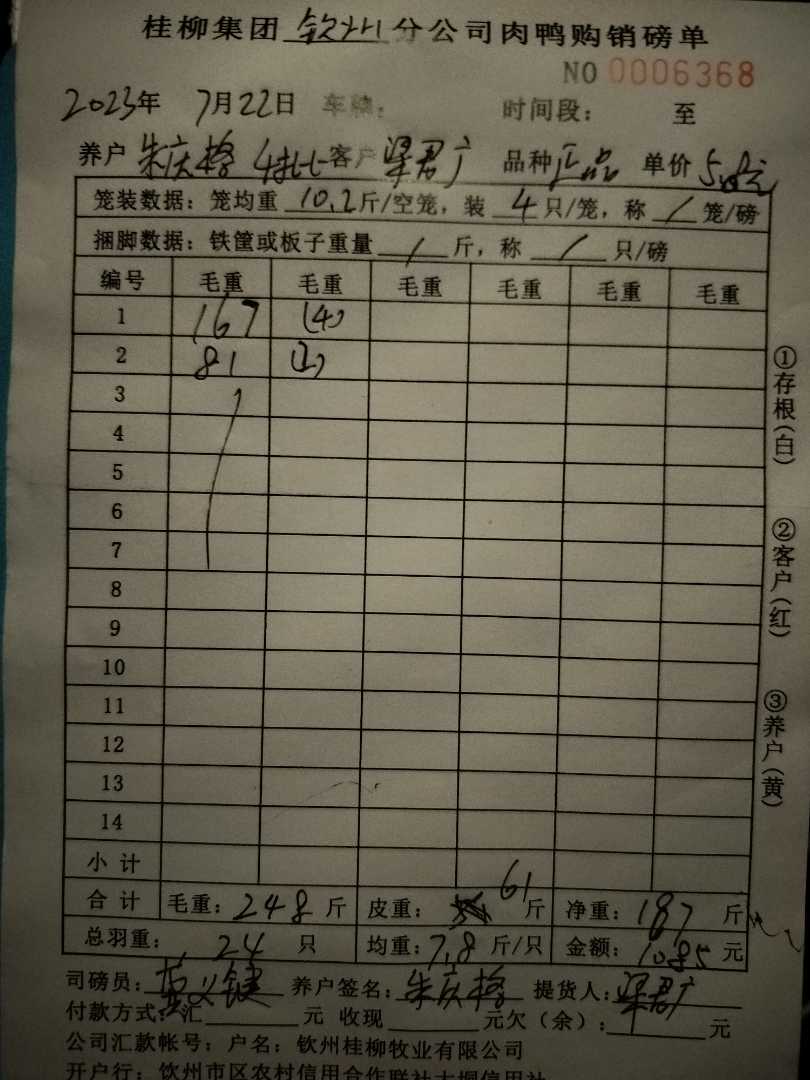 桂柳集团 钦州 分公司肉鸭购销磅单
NO 0006368
2023年 7月22日 车辆: 时间段: 至
养户 朱庆格 4批 客户 梁君广 品种 正品 单价 5.8元
笼装数据: 笼均重 10.2 斤/空笼, 装 4 只/笼, 称 / 笼/磅
捆脚数据: 铁筐或板子重量 / 斤, 称 / 只/磅
编号 毛重 毛重 毛重 毛重 毛重 毛重
1 167 (4)
2 81 (2)
3
4
5
6
7
8
9
10
11
12
13
14
小计
合计 毛重: 248 斤 皮重: 61 斤 净重: 187 斤
总羽重: 24 只 均重: 7.8 斤/只 金额: 1085 元
司磅员: 键 养户签名: 朱庆格 提货人: 梁君广
付款方式: 汇 元 收现 元欠(余): 元
公司汇款帐号: 户名: 钦州桂柳牧业有限公司
开户行: 钦州市区农村信用合作联社大垌信用社
①存根(白)
②客户(红)
③养户(黄)